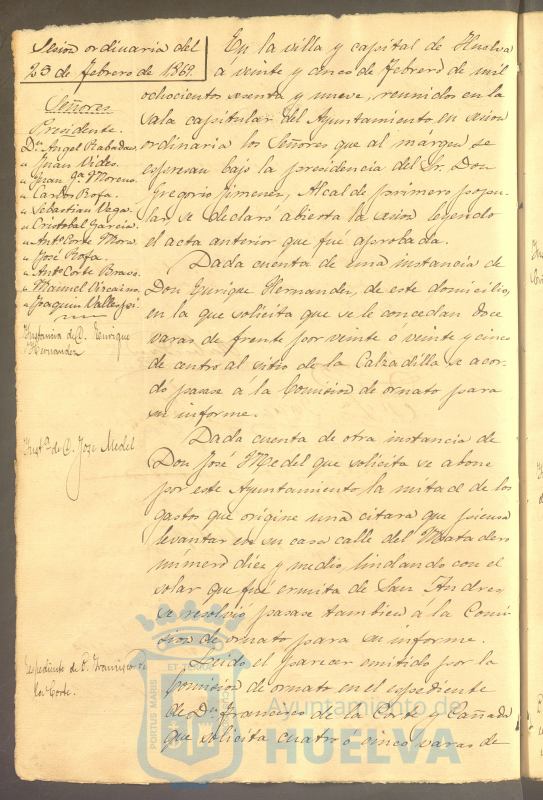 Sesion ordinaria del
25 de febrero de 1869.
Señores
Presidente.
Dn. Angel Rabadan
" Juan Vides.
" Juan Ga. Moreno.
" Carlos Rofa.
" Sebastian Vega.
" Cristobal Garcia.
" Anto. Corte Mora.
" José Rofa.
" Anto. Corte Bravo.
" Manuel Vizcaino.
" Joaquin Vallespi.
En la villa y capital de Huelva
á veinte y cinco de febrero de mil
ochocientos sesenta y nueve, reunidos en la
sala capitular del Ayuntamiento en sesion
ordinaria los Señores que al márgen se
espresan bajo la presidencia del Sr. Don
Gregorio Jimenez, Alcalde primero popu-
lar se declaró abierta la sesion leyendo
el acta anterior que fué aprobada.
Instancia de D. Enrique
Hernandez
Dada cuenta de una instancia de
Don Enrique Hernandez, de este domicilio,
en la que solicita que se le concedan doce
varas de frente por veinte ó veinte y cinco
de centro al sitio de la Calzadilla se acor-
dó pasase a la Comision de ornato para
su informe.
Insta. de D. Jose Medel
Dada cuenta de otra instancia de
Don José Medel que solicita se abone
por este Ayuntamiento la mitad de los
gastos que origine una citara que piensa
levantar en su casa calle del Matadero
número diez y medio, lindando con el
solar que fué ermita de San Andres
se resolvió pasase tambien á la Comi-
sion de ornato para su informe.
Espediente de D. Francisco de
la Corte.
Leido el parecer emitido por la
Comision de ornato en el espediente
de Dn. Francisco de la Corte y Cañada
que solicita cuatro ó cinco varas de
PORTUS MARIS
ET TERRAE
Ayuntamiento de
HUELVA